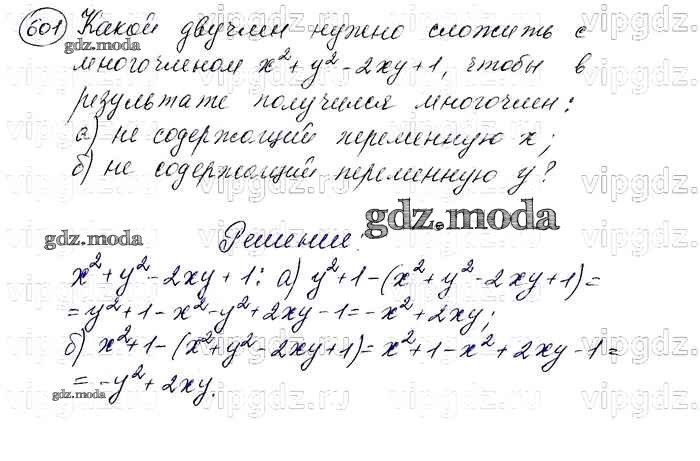 601 Какой двучлен нужно сложить с
многочленом x²+y²-2xy+1, чтобы в
результате получился многочлен:
а) не содержащий переменную x;
б) не содержащий переменную y?
Решение:
x²+y²-2xy+1: а) y²+1-(x²+y²-2xy+1)=
=y²+1-x²-y²+2xy-1=-x²+2xy;
б) x²+1-(x²+y²-2xy+1)=x²+1-x²+2xy-1=
=-y²+2xy.
gdz.moda
gdz.moda
gdz.moda
gdz.moda
vipgdz.ru